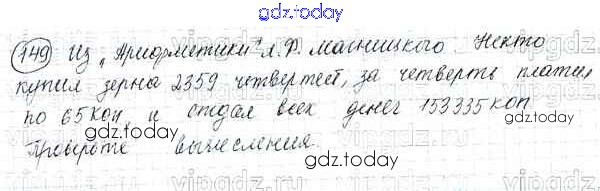 gdz.today
149 Из „Арифметики" Л.Ф. Магницкого Некто
купил зерна 2359 четвертей, за четверть платил
по 65 коп, и отдал всех денег 153335 коп
gdz.today gdz.today
Проверьте вычисления.
gdz.today